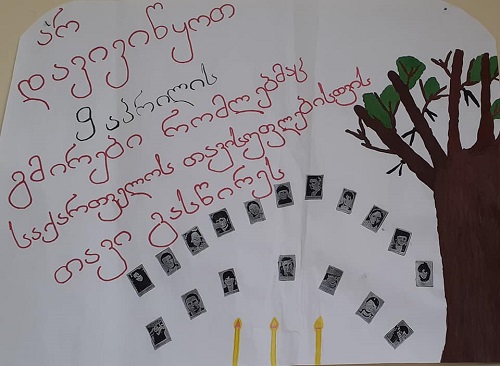 არ
დავივიწყოთ
9 აპრილის
გმირები რომლებმაც
საქართველოს თავისუფლებისთვის
თავი გასწირეს